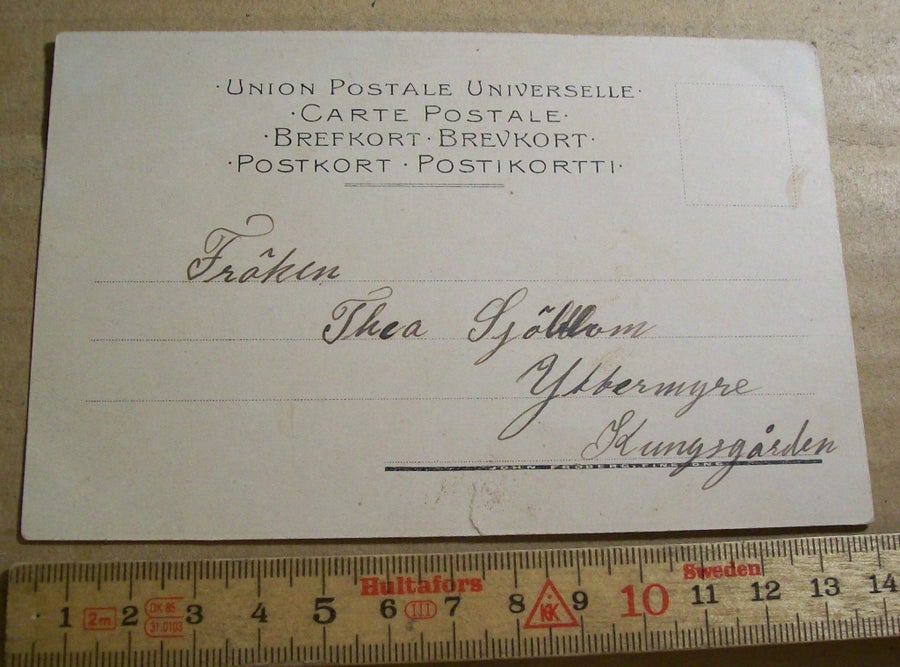 ·UNION POSTALE UNIVERSELLE·
·CARTE POSTALE·
·BREFKORT·BREVKORT·
·POSTKORT·POSTIKORTTI·
Fröken
Thea Sjöblom
Yttermyre
Kungsgården
JOHN FRÖBERG, FINSPONG
Hultafors Sweden
1 2m 2 DK 85 31.0103 3 4 5 6 III 7 8 KK 9 10 11 12 13 14